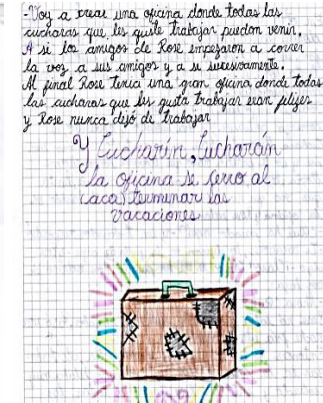 -Voy a crear una oficina donde todas las
cucharas que les guste trabajar puedan venir.
A si los amigos de Rose empezaron a correr
la voz a sus amigos y a si sucesivamente.
Al final Rose tenia una gran oficina donde todas
las cucharas que les gusta trabajar eran felizes
y Rose nunca dejó de trabajar
Y Cucharin, Cucharón
la oficina se cerro al
(aca) terminar las
vacaciones